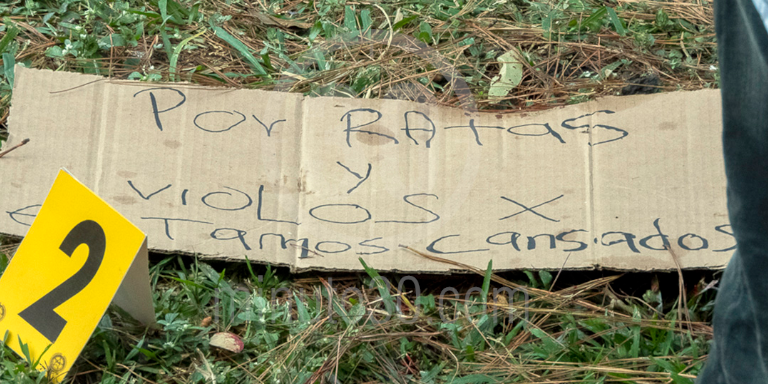 Por RAtas
y
VIOLOS X
E Tamos cansados
2